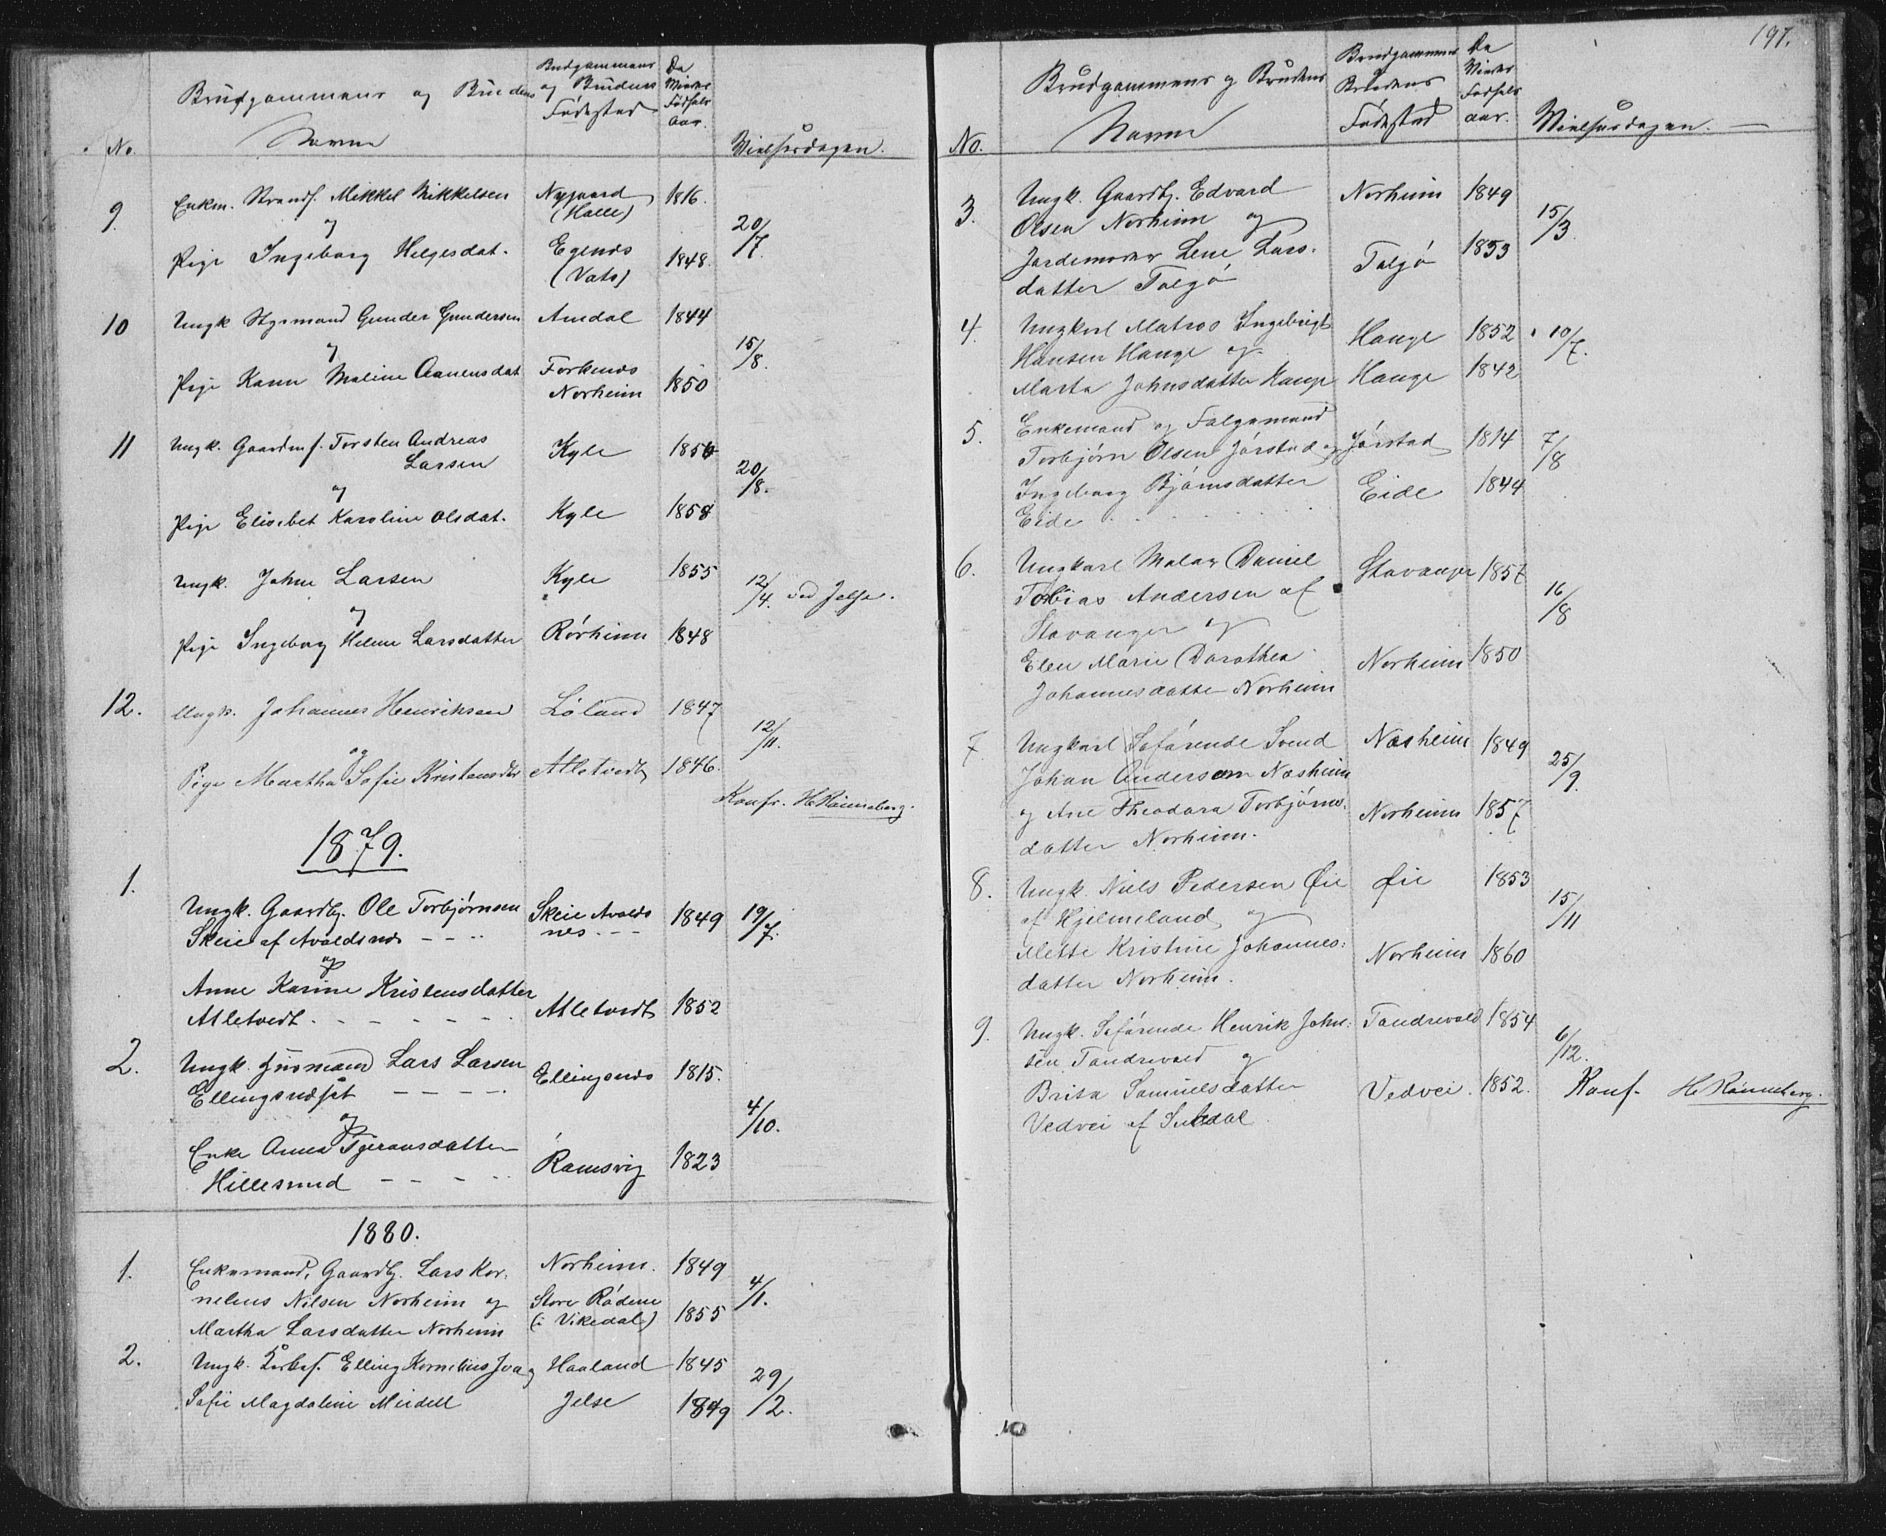 No.
Brudgommens og Brudens
Navne
Brudgommens
og Brudens
Fødested
De
Viedes
Fødsels
aar.
Vielsesdagen.
9. Enkem. Strands. Mikkel Mikkelsen Nygaard (Halle) 1816. 20/7.
og
Pige Ingeborg Helgesdat. Egenes (Vats) 1848.
10 Ungk Gunder Gundersen Amdal 1844 15/8.
og
Pige Karen Maline Aanensdat Norheim 1850
11 Ungk. Gaardm.s. Torsten Andreas Kyle 1856 20/8.
Larsen
og
Pige Elisebet Karoline Olsdat. Kyle 1858
Ungk. Johne Larsen Kyle 1855 12/4. ved Jelse.
og
Pige Ingeborg Helene Larsdatter Rørheim 1848
12. Ungk. Johannes Henriksen Løland 1847 12/11.
og
Pige Martha Sofie Kristensdtr Atletvedt 1846.
Konfr. H Rønneberg.
1879.
1. Ungk. Gaardbr. Ole Torbjørnsen Skeie Avalds 1849 19/7.
Skeie af Avaldsnes - - . . nes. - -
og
Anne Karine Kristensdatter
Atletvedt. - - - - - . Atletvedt 1852
2. Ungk. Husmand Lars Larsen Ellingsnds 1815.
Ellingsndsøt - - - - - 4/10.
og
Enke Anna Tgeransdatter
Hillesund - - - - . . Ramsvig 1823
1880.
1. Enkemand, Gaardbr. Lars Kor- Norheim. 1849 4/1.
nelius Nilsen Norheim og Store Rødne
Martha Larsdatter Norheim (i Vikedal) 1855
2. Ungk. Elling Kornelius Iva og Haaland 1845 29/2.
Sofie Magdaline Meidell Jelse 1849
197.
No.
Brudgommens og Brudens
Navne
Brudgommens
Brudens
Fødested
De
Viedes
Fødsels
aar.
Vielsesdagen.
3. Ungk. Gaardbr. Edvard Norheim 1849 15/3.
Olsen Norheim og
Jordemoder Lene Lars- Talgø 1853
datter Talgø
4. Ungkarl Matros Ingebrigt Hauge 1852 10/7.
Hansen Hauge og
Marta Johnsdatter Hauge Hauge 1842
5. Enkemand og Folgemand
Torbjørn Olsen Jørstad og Jørstad 1814 7/8
Ingeborg Bjørnsdatter Eide 1844
Eide . . . . . . . .
6. Ungkarl Maler Daniel Stavanger 1857
Tobias Andersen af 16/8
Stavanger og
Elen Marie Dorothea Norheim 1850
Johannesdatter Norheim
7 Ungkarl Søfarende Svend Næsheim 1849 25/9.
Johan Andersen Næsheim
og Ane Theodora Torbjørns- Norheim 1857
datter Norheim.
8. Ungk. Niels Pedersen Øie Øie 1853 15/11
af Hjelmeland og
Mette Kristine Johannes- Norheim 1860
datter Norheim.
9. Ungk. Søfarende Henrik John- Tandrevold 1854 6/12.
sen Tandrevold og
Brita Samuelsdatter Vedvei. 1852. Konf. H Rønneberg.
Vedvei af Suledal.